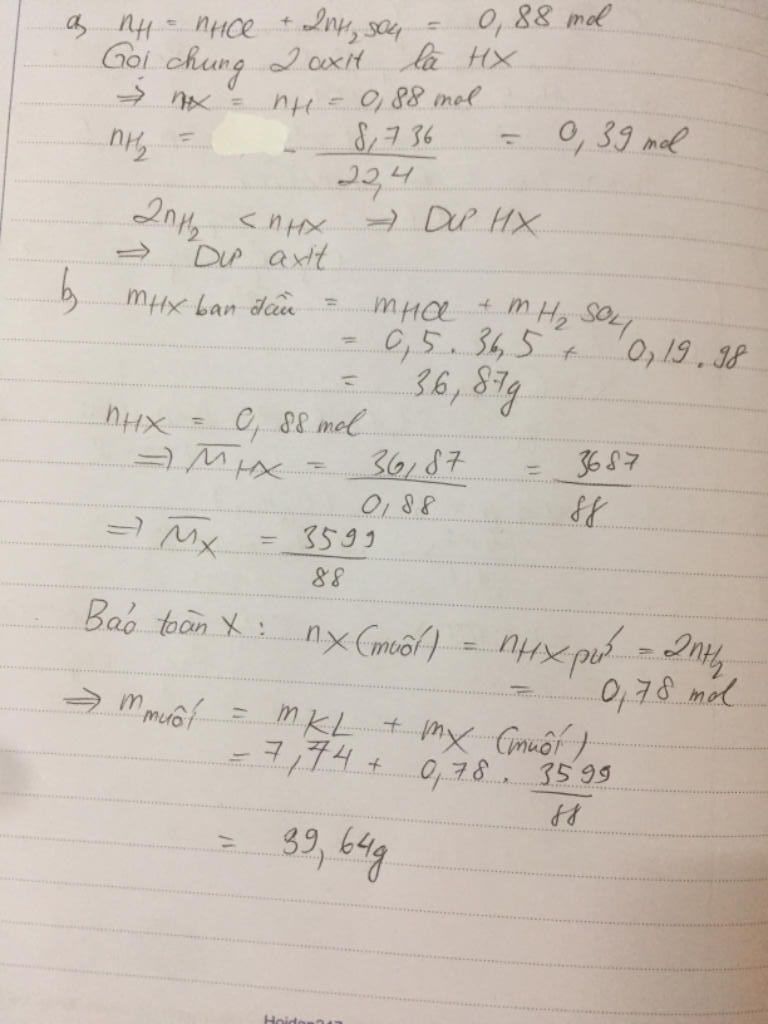 a) nH = nHCl + 2nH2SO4 = 0,88 mol
Gọi chung 2 axit là HX
⇒ nHX = nH = 0,88 mol
nH2 = 8,736/22,4 = 0,39 mol
2nH2 < nHX ⇒ Dư HX
⇒ Dư axit
b) mHX ban đầu = mHCl + mH2SO4
= 0,5.36,5 + 0,19.98
= 36,87g
nHX = 0,88 mol
⇒ M̅HX = 36,87/0,88 = 3687/88
⇒ M̅X = 3599/88
Bảo toàn X: nX(muối) = nHX pứ = 2nH2
= 0,78 mol
⇒ mmuối = mKL + mX (muối)
= 7,74 + 0,78. 3599/88
= 39,64g
Hoidap247